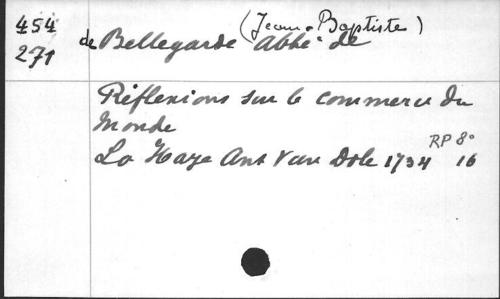 454 (Jean-Baptiste)
271 de Bellegarde Abbé de
Réflexions sur le commerce du
Monde
RP 8°
La Haye Ant Van Dole 1734 16